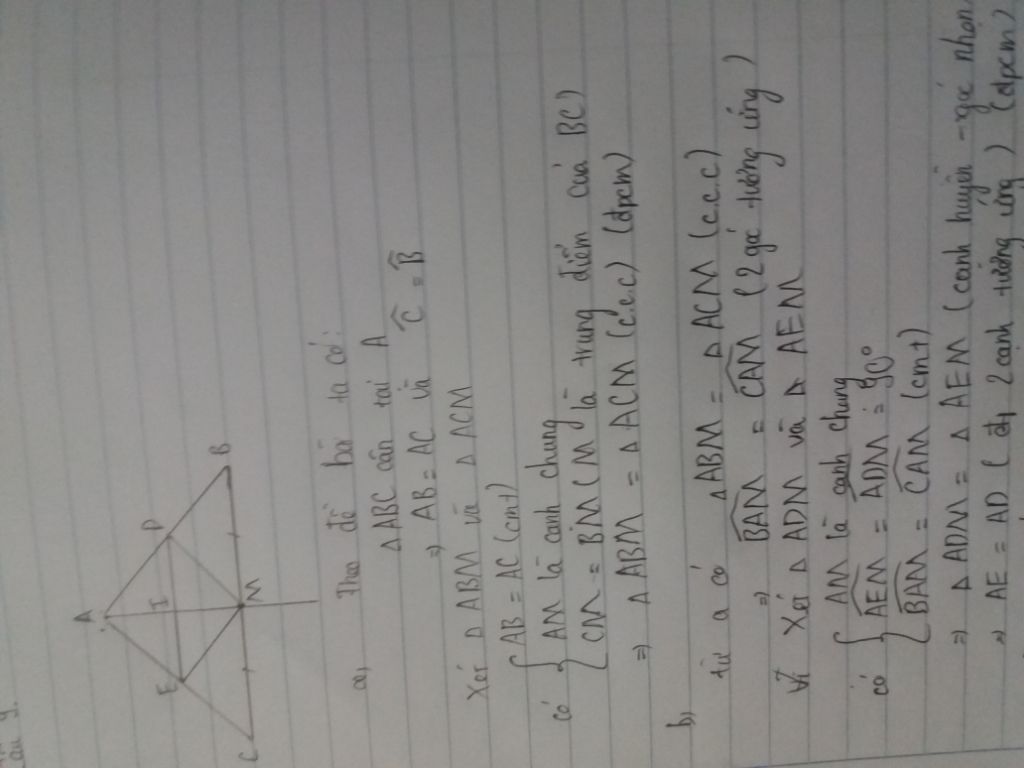 Câu 9.
A
E I D
C M B
a, Theo đề bài ta có:
Δ ABC cân tại A
⇒ AB = AC và Ĉ = B̂
Xét Δ ABM và Δ ACM
có { AB = AC (cmt)
AM là cạnh chung
CM = BM (M là trung điểm của BC)
⇒ Δ ABM = Δ ACM (c.c.c) (đpcm)
b, từ a có Δ ABM = Δ ACM (c.c.c)
⇒ BAM = CAM (2 góc tương ứng)
Xét Δ ADM và Δ AEM
có { AM là cạnh chung
AEM = ADM = 90°
BAM = CAM (cmt)
⇒ Δ ADM = Δ AEM (cạnh huyền - góc nhọn)
⇒ AE = AD ( 2 cạnh tương ứng ) (đpcm)